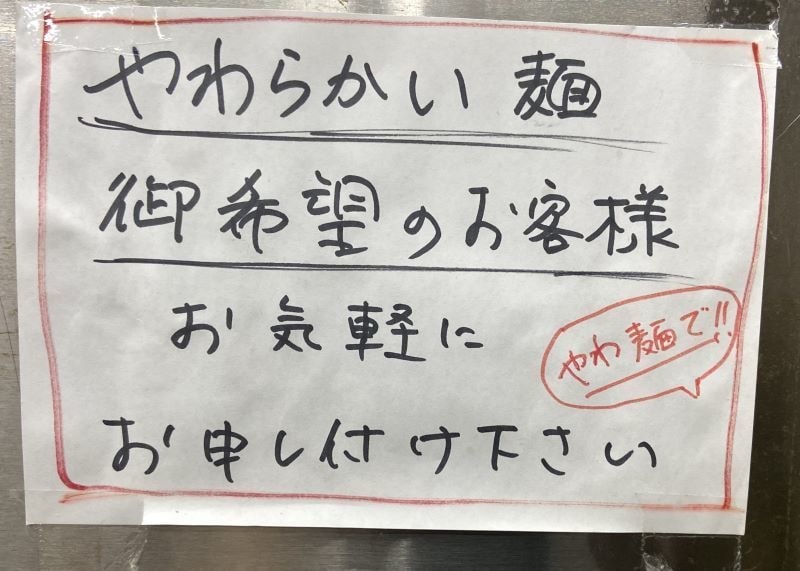 やわらかい麺
御希望のお客様
お気軽に
やわ麺で!!
お申し付け下さい